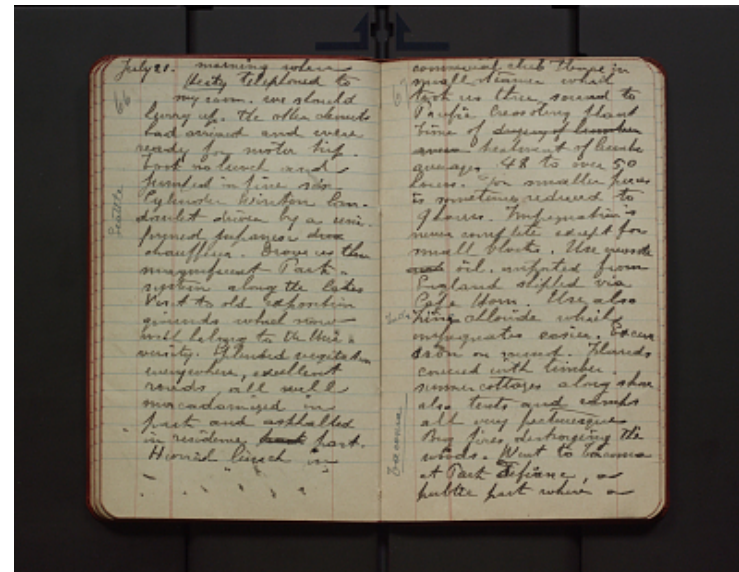 July 21. morning when
66
Hesty telephoned to
my room. we should
hurry up. the other chemists
had arrived and were
ready for motor trip.
Took no lunch and
jumped in fine six
Cylinder Winton lan-
Seattle
doulet driven by a uni-
formed Japanese
chauffeur. Drove us thru
magnificent Park-
system along the lakes
Visit to old exposition
grounds which now
will belong to the Uni-
versity. Splendid vegetation
everywhere, excellent
roads, all well
macadamized in
part and asphalted
in residence part.
Hurried lunch in
commercial club then in
67
small steamer which
took us thru sound to
Pacific Creosoting plant
time of
treatment of
averages 48 to over 50
hours. For smaller pieces
is sometimes reduced to
9 hours. Impregnation is
never complete except for
small blocks. Use creosote
oil. imported from
England shipped via
Cape Horn. Use also
Zinc chloride which
impregnates easier. Excur
sion on sound. Islands
covered with timber.
summer cottages along shore
also tents and camps
all very picturesque
Big fires destroying the
woods. Went to Tacoma
Tacoma
at Park Defiance, a
public park where a